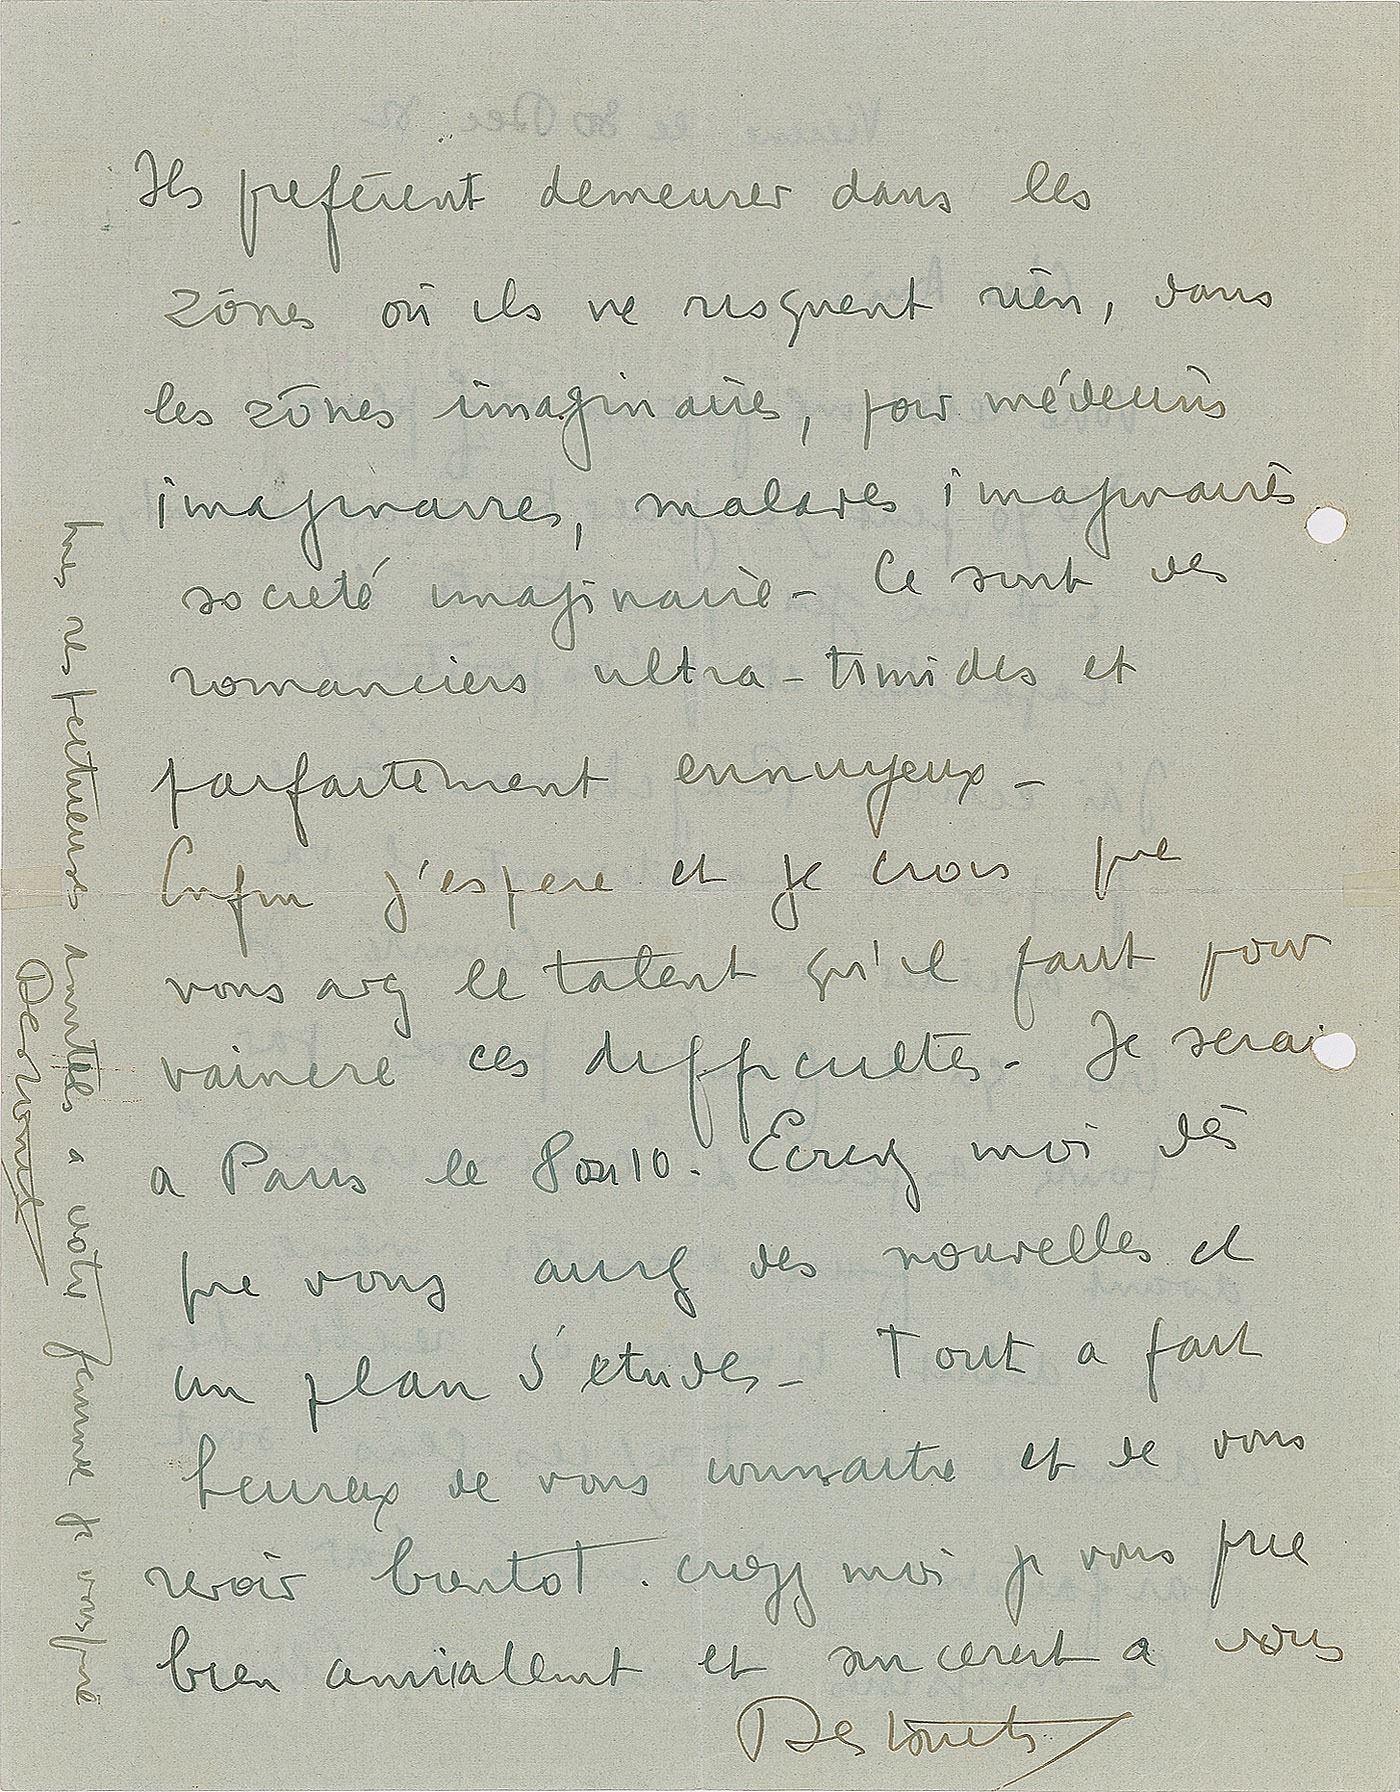 Ils preférent demeurer dans les
zônes où ils ne risquent rien, dans
les zônes imaginaires, pour médecins
imaginaires, malades imaginaires
societé imaginaire - Ce sont des
romanciers ultra-timides et
parfaitement ennuyeux -
Enfin j'espere et je crois que
vous avez le talent qu'il faut pour
vaincre ces difficultes - Je serai
a Paris le 8 ou 10. Ecrivez moi dès
que vous aurez des nouvelles et
un plan d'études - Tout a fait
heureux de vous connaitre et de vous
revoir bientot. croyez moi je vous prie
bien amicalemt et sincerent a vous
Destouches
mes respectueuses amitiés a votre femme je vous prie